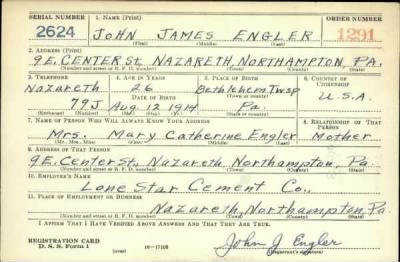 SERIAL NUMBER 1. NAME (Print) ORDER NUMBER
2624 JOHN JAMES ENGLER 1291
(First) (Middle) (Last)
2. ADDRESS (Print)
9 E. CENTER St. NAZARETH, NORTHAMPTON, PA.
(Number and street or R. F. D. number) (Town) (County) (State)
3. TELEPHONE 4. AGE IN YEARS 5. PLACE OF BIRTH 6. COUNTRY OF CITIZENSHIP
Nazareth 26 Bethlehem Twsp
DATE OF BIRTH (Town or county) U.S.A.
79J Aug 12 1914 Pa.
(Exchange) (Number) (Mo.) (Day) (Yr.) (State or country)
7. NAME OF PERSON WHO WILL ALWAYS KNOW YOUR ADDRESS 8. RELATIONSHIP OF THAT PERSON
Mrs. Mary Catherine Engler Mother
(Mr., Mrs., Miss) (First) (Middle) (Last)
9. ADDRESS OF THAT PERSON
9 E. Center St., Nazareth, Northampton, Pa.
(Number and street or R. F. D. number) (Town) (County) (State)
10. EMPLOYER'S NAME
Lone Star Cement Co.,
11. PLACE OF EMPLOYMENT OR BUSINESS
Nazareth, Northampton, Pa.
(Number and street or R. F. D. number) (Town) (County) (State)
I AFFIRM THAT I HAVE VERIFIED ABOVE ANSWERS AND THAT THEY ARE TRUE.
REGISTRATION CARD
D. S. S. Form 1 (over) 16—17105 John J Engler
(Registrant's signature)